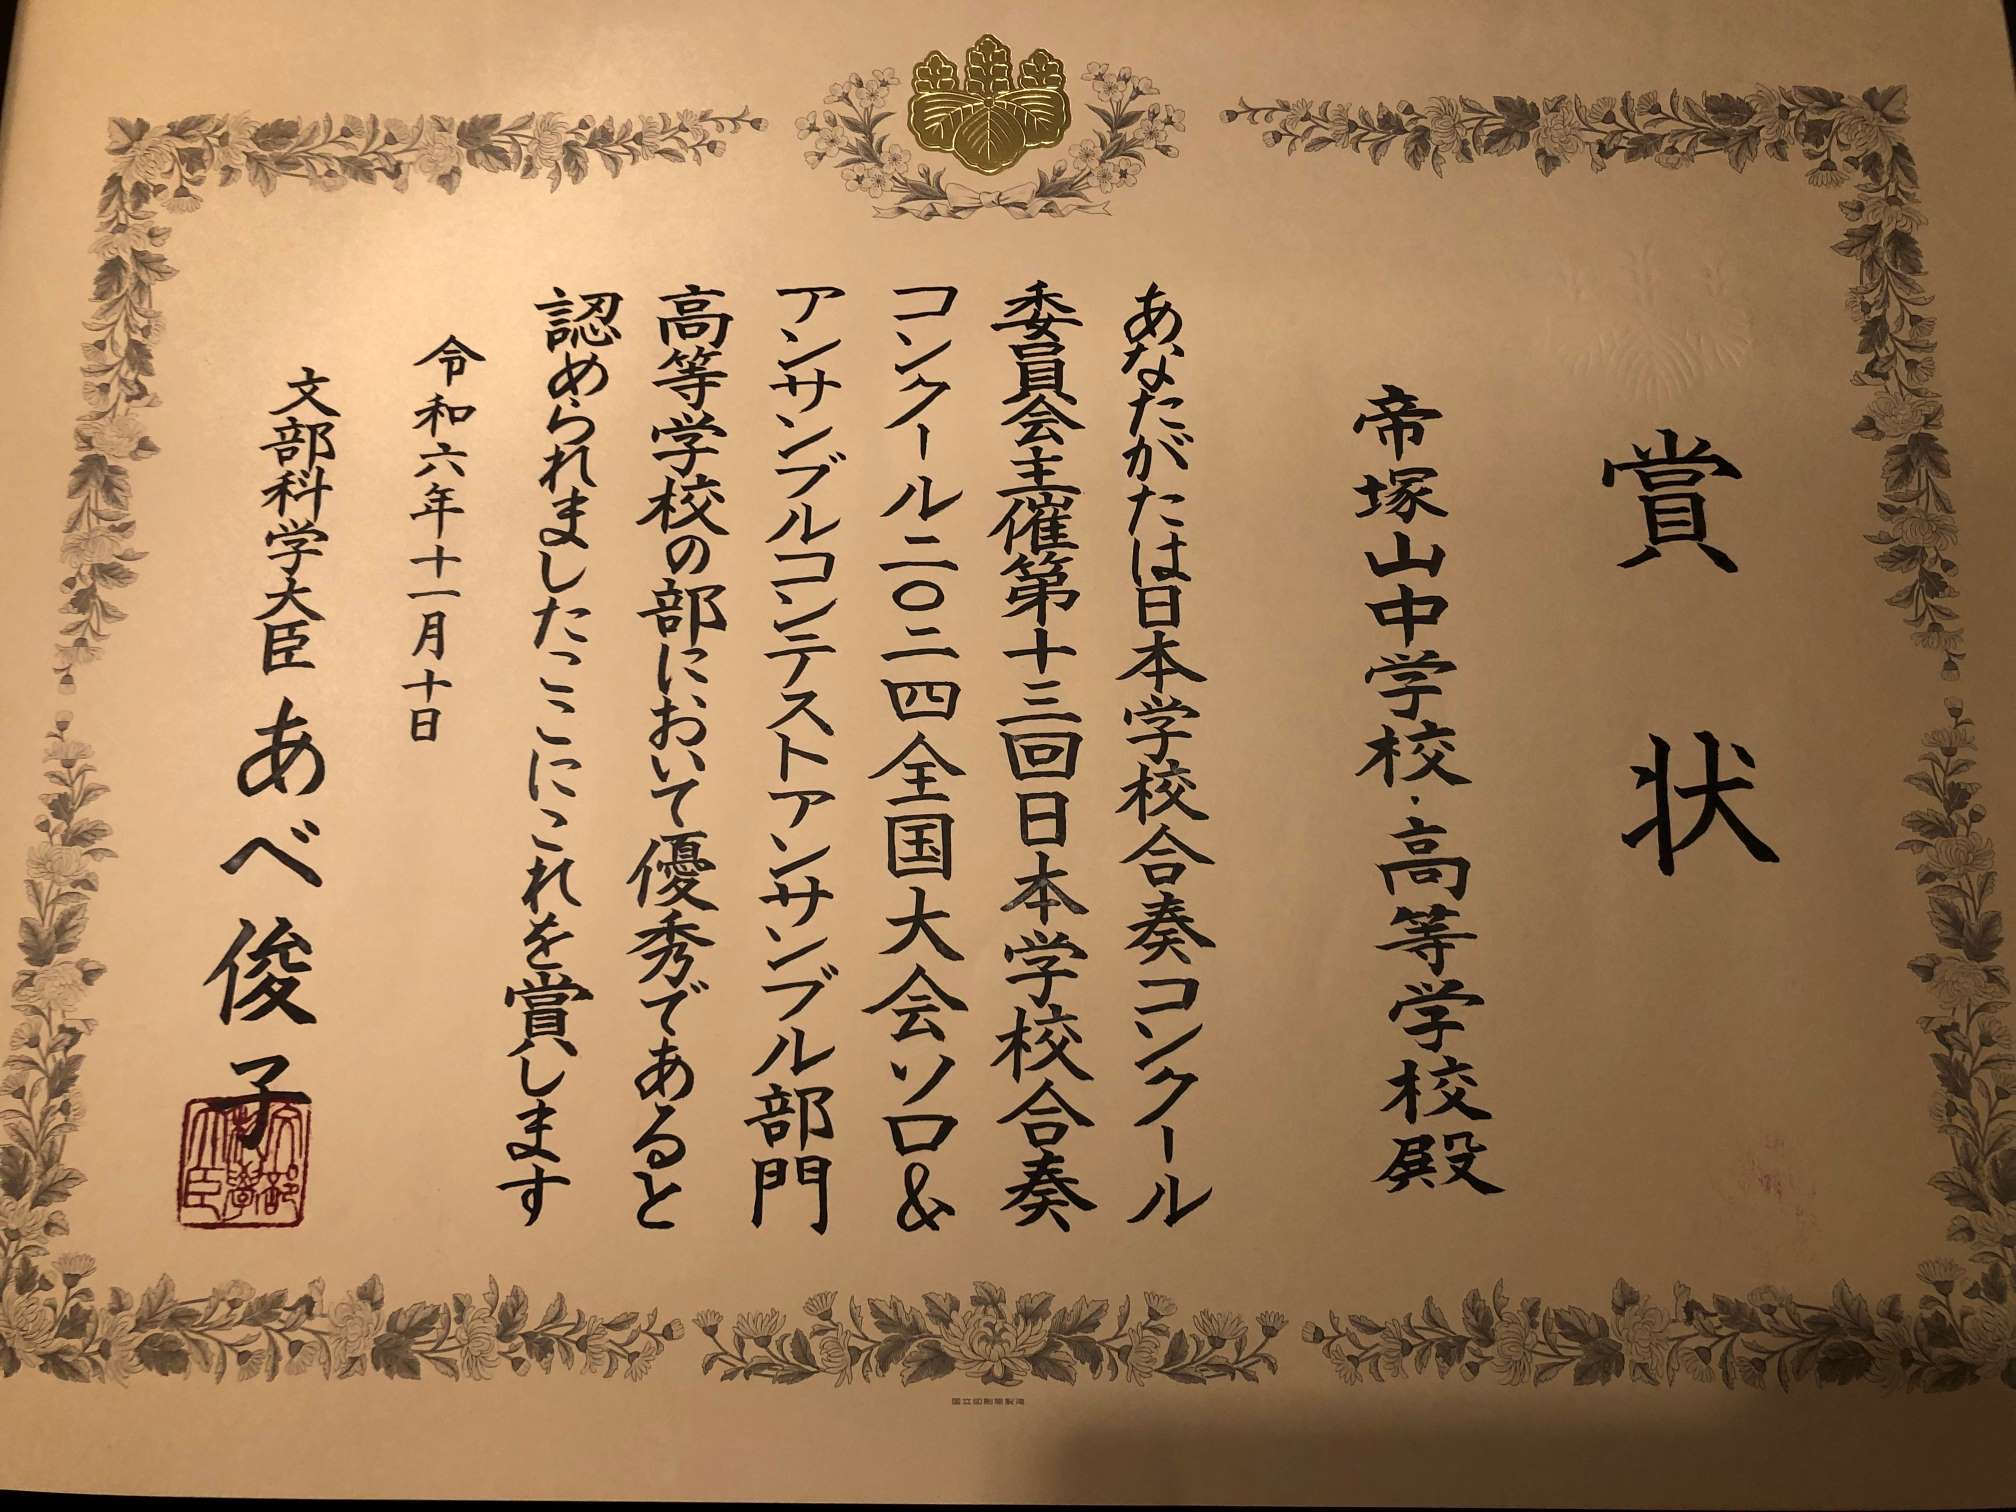 賞状
帝塚山中学校・高等学校殿
あなたがたは日本学校合奏コンクール
委員会主催第十三回日本学校合奏
コンクール二〇二四全国大会ソロ&
アンサンブルコンテストアンサンブル部門
高等学校の部において優秀であると
認められましたここにこれを賞します
令和六年十一月十日
文部科学大臣 あべ俊子
文部科學大臣
国立印刷局製造